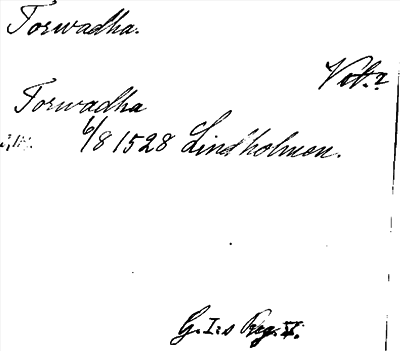 Torwadha.
Vet.?
Torwadha
6/8 1528 Lindholmen.
G. I:s Reg. V.